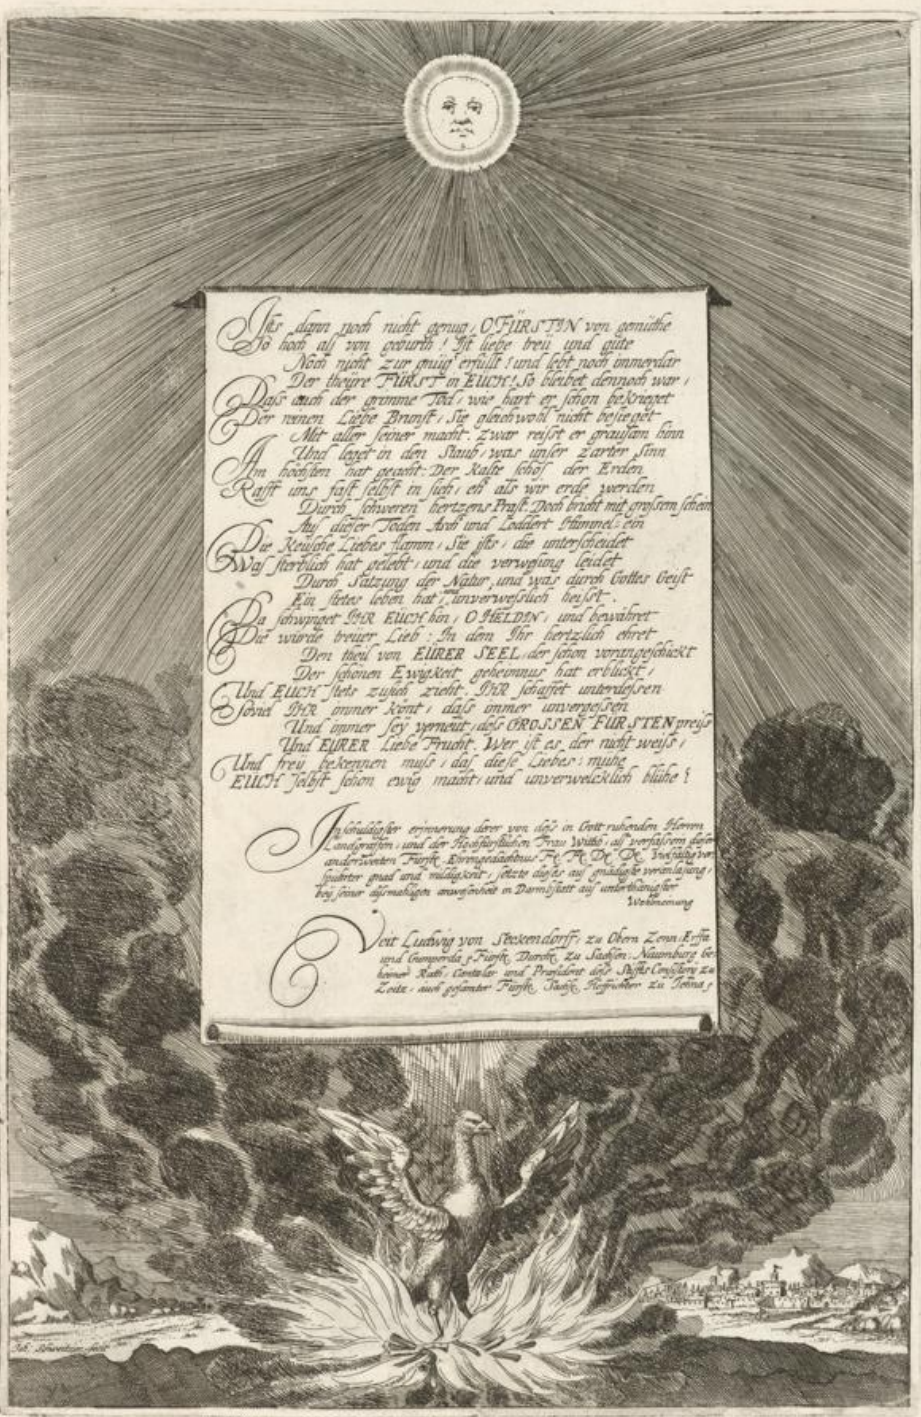 Ists dann noch nicht genug, O FÜRSTIN von gemüthe
So hoch als von geburth! Ist liebe treü und güte
Noch nicht zur gnüg erfüllt! und lebt noch immerdar
Der theüre FÜRST in EUCH! So bleibet dennoch war,
Dass auch der grimme Tod, wie hart er schon bekrieget
Der reinen Liebe Brunst, Sie gleichwohl nicht besieget
Mit aller seiner macht. Zwar reisst er grausam hinn
Und leget in den Staub, was unser zarter Sinn
Am höchsten hat geacht: Der Kalte schos der Erden
Rafft uns fast selbst in sich, eh als wir erde werden
Durch schweren hertzens Prast. Doch bricht mit grossem schein
Aus dieser Toden Asch und Loddert Himmel ein
Die Keusche Liebes flamm, Sie ists, die unterscheidet
Was sterblich hat gelebt, und die verwesung leidet
Durch Satzung der Natur, und was durch Gottes Geist
Ein stetes leben hat, und unverwesslich heisst.
Da schwinget IHR EUCH hin, O HELDIN, und bewähret
Die würde treüer Lieb: In dem Ihr hertzlich ehret
Den theil von EÜRER SEEL, der schon vorangeschickt
Der schönen Ewigkeit geheimnus hat erblickt,
Und EUCH stets zusich zieht. IHR schaffet unterdessen
Soviel IHR immer könt, dass immer unvergessen
Und immer sey verneüt, dess GROSSEN FÜRSTEN preiss
Und EÜRER Liebe Frucht. Wer ist es, der nicht weiss,
Und frey bekennen muss, das diese Liebes-mühe
EUCH selbst schon ewig macht, und unverwelcklich blühe!
In schuldigster erinnerung derer von dess in Gott ruhenden Herren
Landgraffen, und der Hochfürstlichen Frau Wittib, als verfassern dieser
anderweiten Fürstl. Ehrengedächtnus Fr. Fr. Dr. Dr. vielfältig ver-
spürter gnad und mildigkeit, setzte dieses auf gnädigste veranlassung,
bey seiner dismahligen anwesenheit in Darmbstatt aus unterthänigster
Wohlmeinung
Veit Ludwig von Seckendorff, zu Obern Zenn, Erffa
und Gumperda, Fürstl. Durchl. zu Sachsen Naumburg ge-
heimer Rath, Cantzlar und Praesident dess Stiffts Consistorij zu
Zeitz, auch gesamter Fürstl. Sächs. Hoffrichter zu Jehna,
Joh. Schweitzer fecit